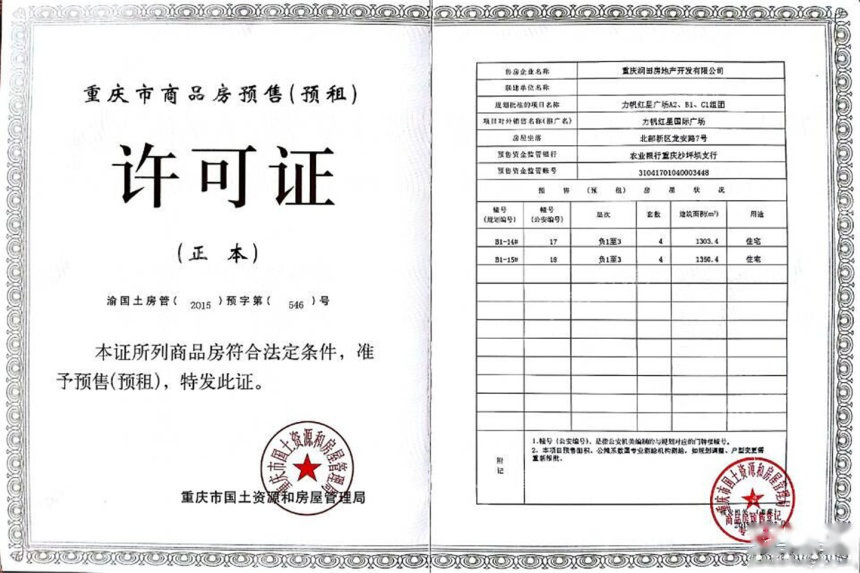 重庆市商品房预售(预租)
许可证
(正 本)
渝国土房管( 2015 )预字第( 546 )号
本证所列商品房符合法定条件，准
予预售(预租)，特发此证。
重庆市国土资源和房屋管理局
售房企业名称 重庆润田房地产开发有限公司
联建单位名称
规划批准的项目名称 力帆红星广场A2、B1、C1组团
项目对外销售名称(推广名) 力帆红星国际广场
房屋坐落 北部新区龙安路7号
预售资金监管银行 农业银行重庆沙坪坝支行
预售资金监管账号 31041701040003448
预 售 (预 租) 房 屋 状 况
幢号 幢号 层次 套数 建筑面积(m²) 用途
(规划编号) (公安编号)
B1-14# 17 负1至3 4 1303.4 住宅
B1-15# 18 负1至3 4 1350.4 住宅
附
记
1.幢号（公安编号），是指公安机关编制的与规划对应的门牌楼幢号。
2、本项目预售面积、公摊系数属专业测绘机构测绘，如规划调整、户型变更需
重新报批。
重庆市国土资源和房屋管理局
重庆市国土资源和房屋管理局
商品房预售登记